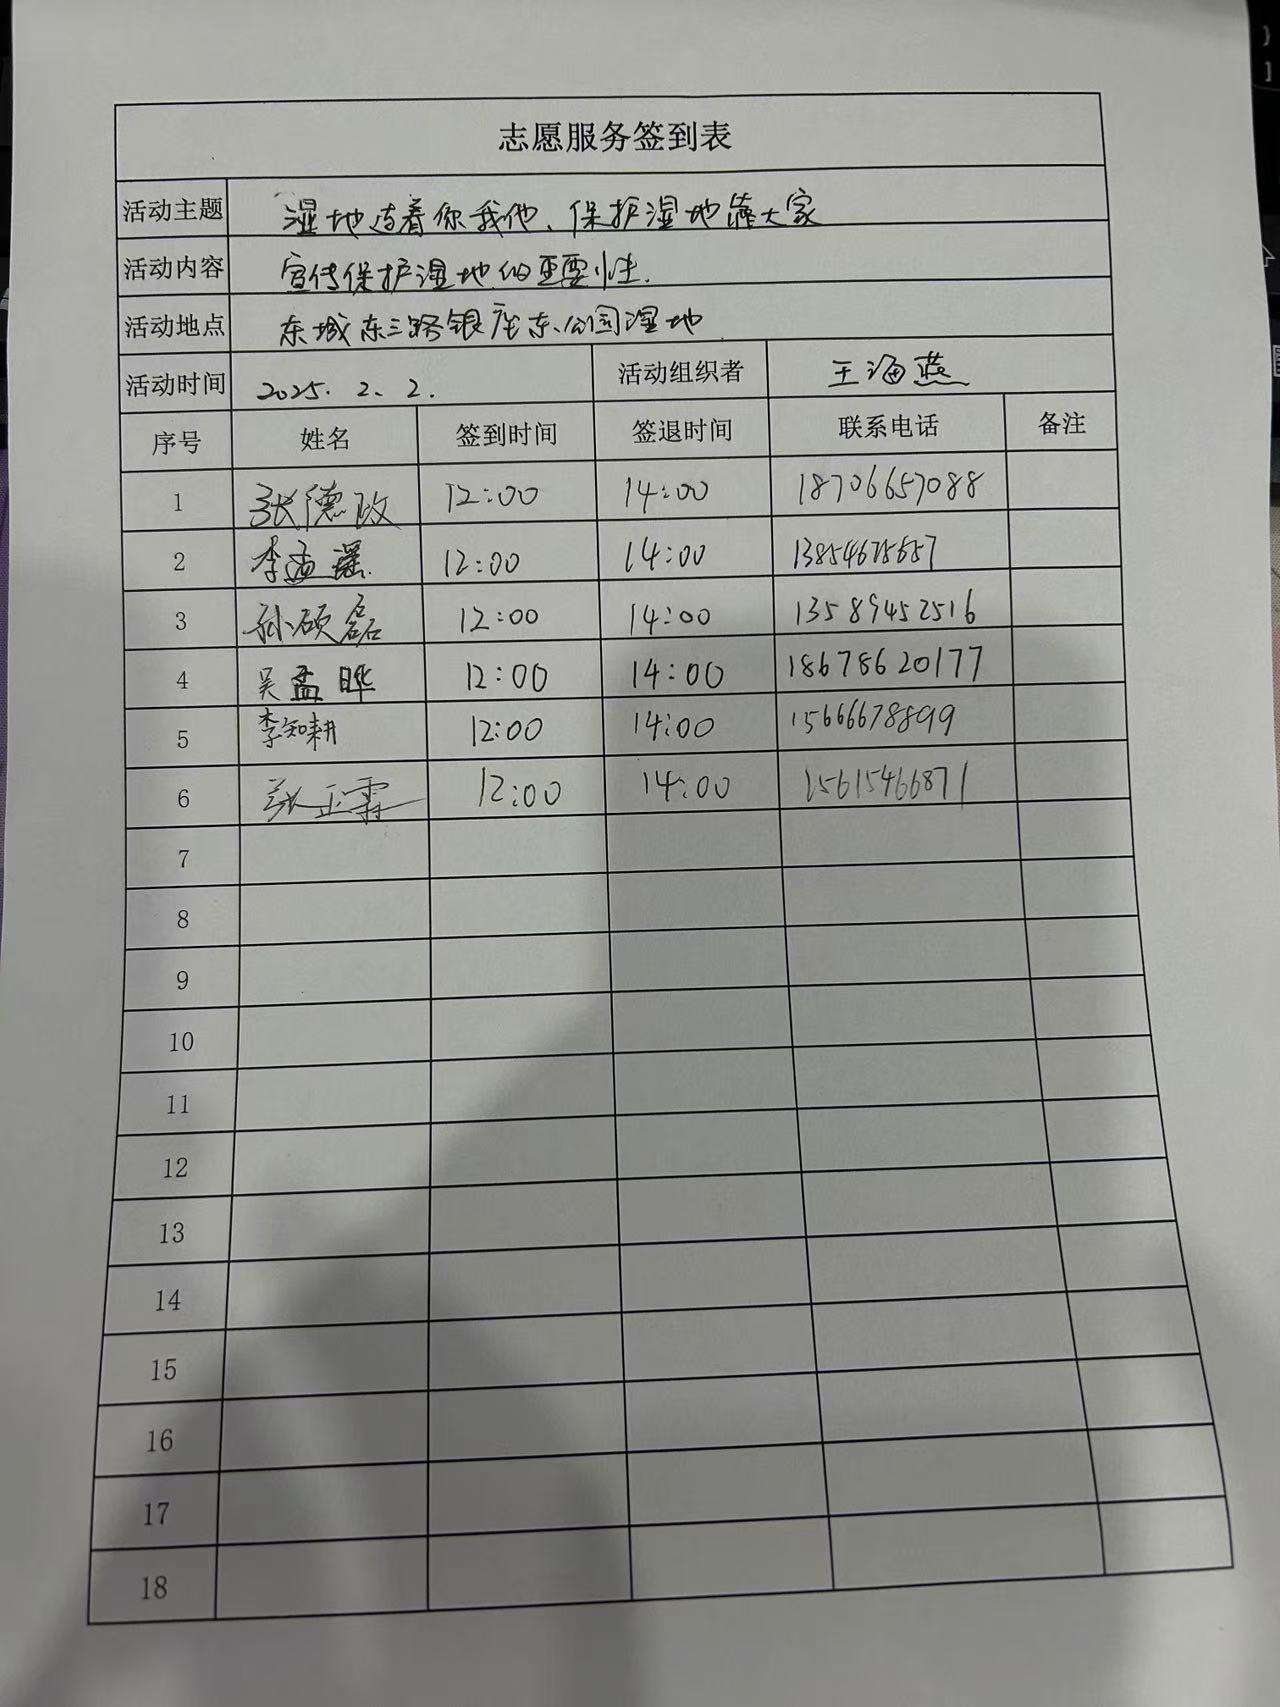 志愿服务签到表
活动主题 湿地连着你我他、保护湿地靠大家
活动内容 宣传保护湿地的重要性.
活动地点 东城东三路银座东公园湿地
活动时间 2025.2.2. 活动组织者 王海燕
序号 姓名 签到时间 签退时间 联系电话 备注
1 张德政 12:00 14:00 18706657088
2 李孟瑶 12:00 14:00
3 孙硕磊 12:00 14:00 13589452516
4 吴孟晔 12:00 14:00 18678620177
5 李知耕 12:00 14:00 15666678899
6 张正霖 12:00 14:00 15615466871
7
8
9
10
11
12
13
14
15
16
17
18